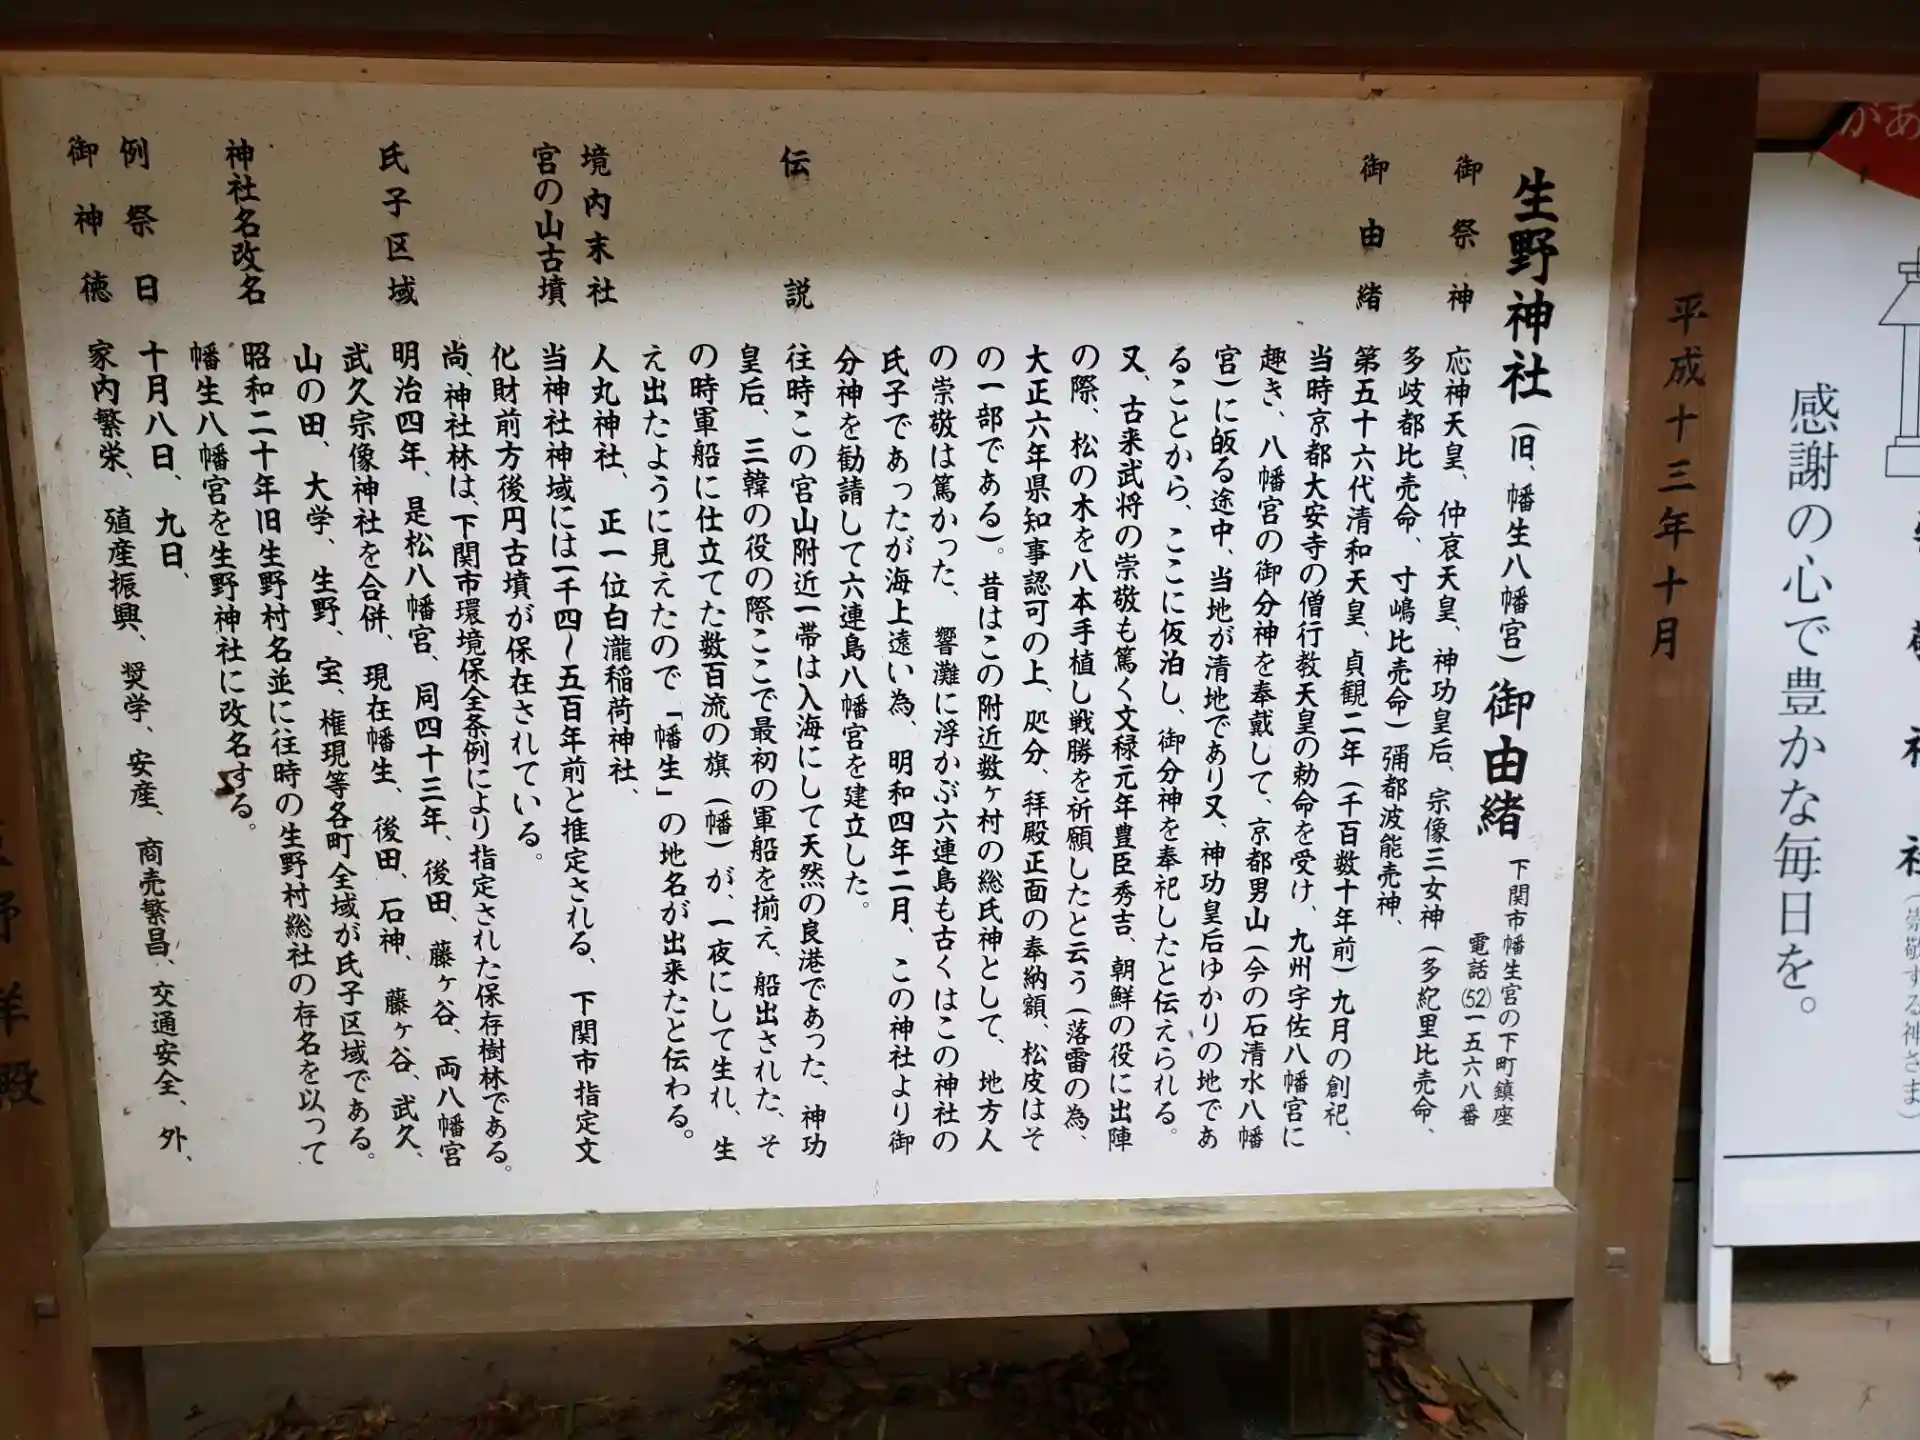 生野神社（旧、幡生八幡宮）御由緒
下関市幡生宮の下町鎮座
電話(52)一五六八番
御祭神
応神天皇、仲哀天皇、神功皇后、宗像三女神（多紀里比売命、
多岐都比売命、寸嶋比売命）彌都波能売神、
御由緒
第五十六代清和天皇、貞観二年（千百数十年前）九月の創祀、
当時京都大安寺の僧行教天皇の勅命を受け、九州宇佐八幡宮に
趣き、八幡宮の御分神を奉戴して、京都男山（今の石清水八幡
宮）に皈る途中、当地が清地であり又、神功皇后ゆかりの地であ
ることから、ここに仮泊し、御分神を奉祀したと伝えられる。
又、古来武将の崇敬も篤く文禄元年豊臣秀吉、朝鮮の役に出陣
の際、松の木を八本手植し戦勝を祈願したと云う（落雷の為、
大正六年県知事認可の上、処分、拝殿正面の奉納額、松皮はそ
の一部である）。昔はこの附近数ヶ村の総氏神として、地方人
の崇敬は篤かった、響灘に浮かぶ六連島も古くはこの神社の
氏子であったが海上遠い為、明和四年二月、この神社より御
分神を勧請して六連島八幡宮を建立した。
伝説
往時この宮山附近一帯は入海にして天然の良港であった、神功
皇后、三韓の役の際ここで最初の軍船を揃え、船出された、そ
の時軍船に仕立てた数百流の旗（幡）が、一夜にして生れ、生
え出たように見えたので「幡生」の地名が出来たと伝わる。
境内末社
人丸神社、正一位白瀧稲荷神社、
宮の山古墳
当神社神域には一千四～五百年前と推定される、下関市指定文
化財前方後円古墳が保存されている。
尚、神社林は、下関市環境保全条例により指定された保存樹林である。
氏子区域
明治四年、是松八幡宮、同四十三年、後田、藤ヶ谷、両八幡宮
武久宗像神社を合併、現在幡生、後田、石神、藤ヶ谷、武久、
山の田、大学、生野、宝、権現等各町全域が氏子区域である。
神社名改名
昭和二十年旧生野村名並に往時の生野村総社の存名を以って
幡生八幡宮を生野神社に改名する。
例祭日
十月八日、九日、
御神徳
家内繁栄、殖産振興、奨学、安産、商売繁昌、交通安全、外、
平成十三年十月
があ
感謝の心で豊かな毎日を。
（崇敬する神さま）